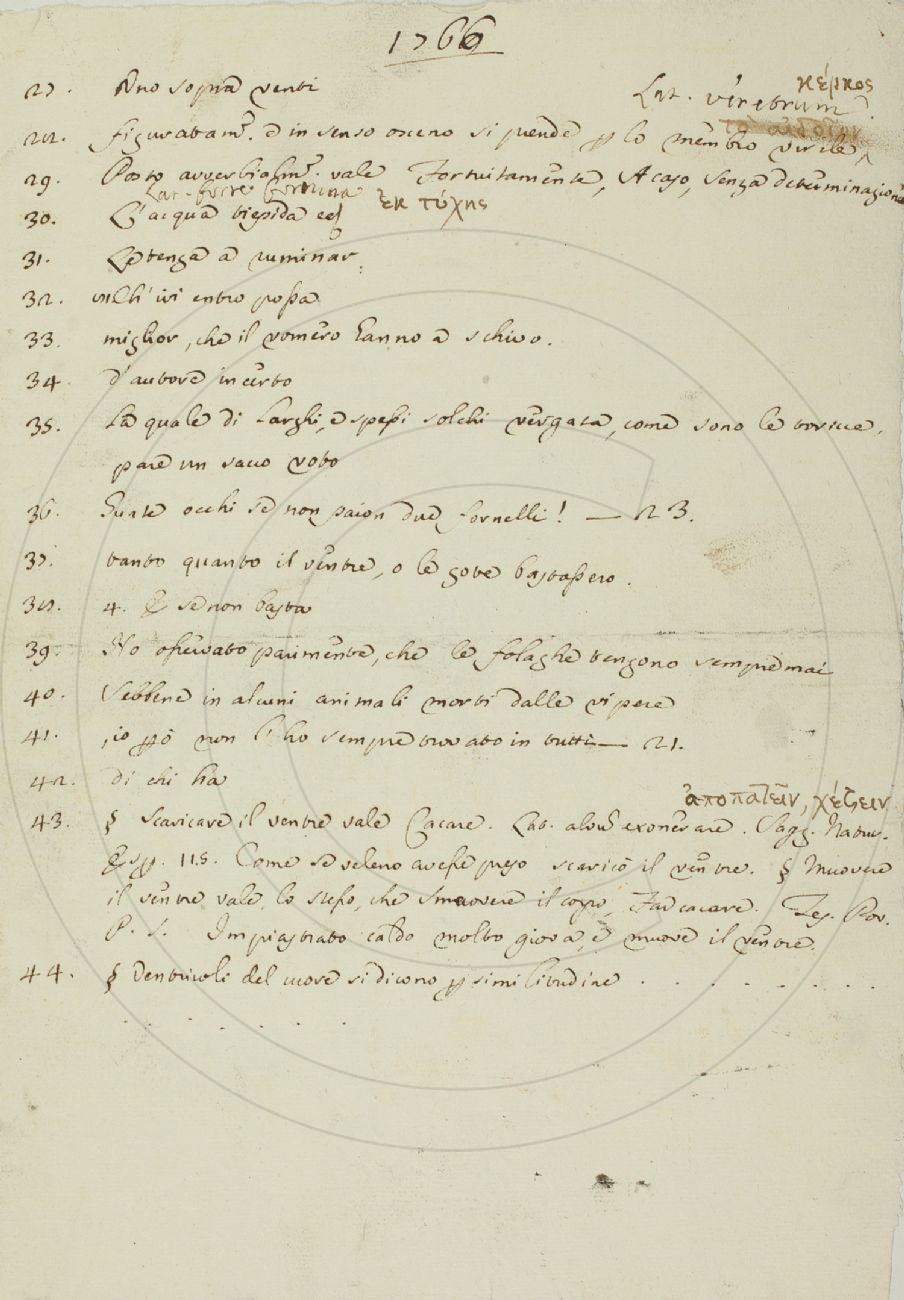 1766
27. Uno sopra venti
κέρκος
Lat. veretrum?
τὸ αἰδοῖον
28. figuratam.e e in senso osceno si prende p lo membro virile,
29. Posto avverbialm.e vale Fortuitamente, A caso, Senza determinazione
Lat. forte fortuna ἐκ τύχης
30. L'acqua tiepida ec
31. Potenza a ruminar
32. ch'ivi entro possa
33. miglior, che il vomero hanno a schivo.
34. d'autore incerto
35. la quale di larghi, e spessi solchi vergata, come sono le
pare un sacco voto
36. Guate occhi se non paion due fornelli! — 23.
37. tanto quanto il ventre, o le gote bastassero.
38. 4. E se non basta
39. Ho osservato parimente, che le folaghe tengono sempre mai
40. Sebbene in alcuni animali morti dalle vipere
41. , io pò non l'ho sempre trovato in tutti — 21.
42. di chi ha
ἀποπατεῖν, χέζειν
43. § Scaricare il ventre vale Cacare. Lat. alvum exonerare. Sagg. Natur.
Esp. 115. Come se veleno avesse preso scaricò il ventre. § Muovere
il ventre vale lo stesso, che Smuovere il corpo, Far cacare. Tes. Pov.
P. S. Impiastrato caldo molto giova, e muove il ventre.
44. § Ventricoli del cuore si dicono p similitudine . . . . . . . .
. . . . . .